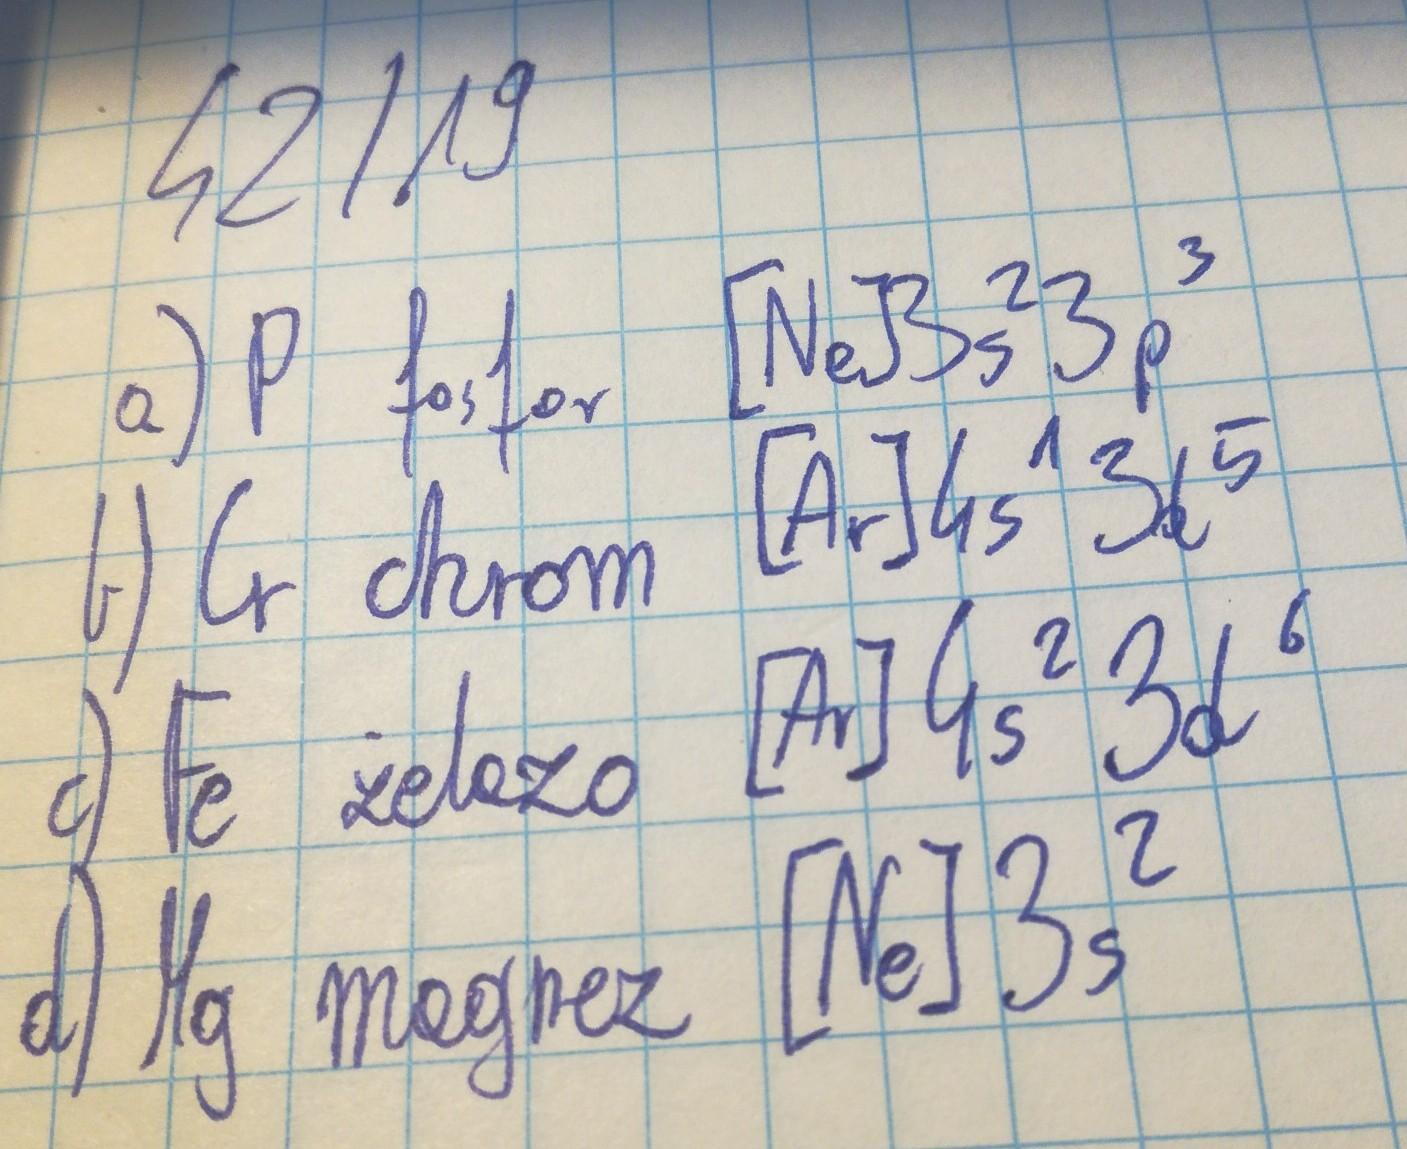 42/19
a) P fosfor [Ne]3s²3p³
b) Cr chrom [Ar]4s¹3d⁵
c) Fe żelazo [Ar]4s²3d⁶
d) Mg magnez [Ne]3s²